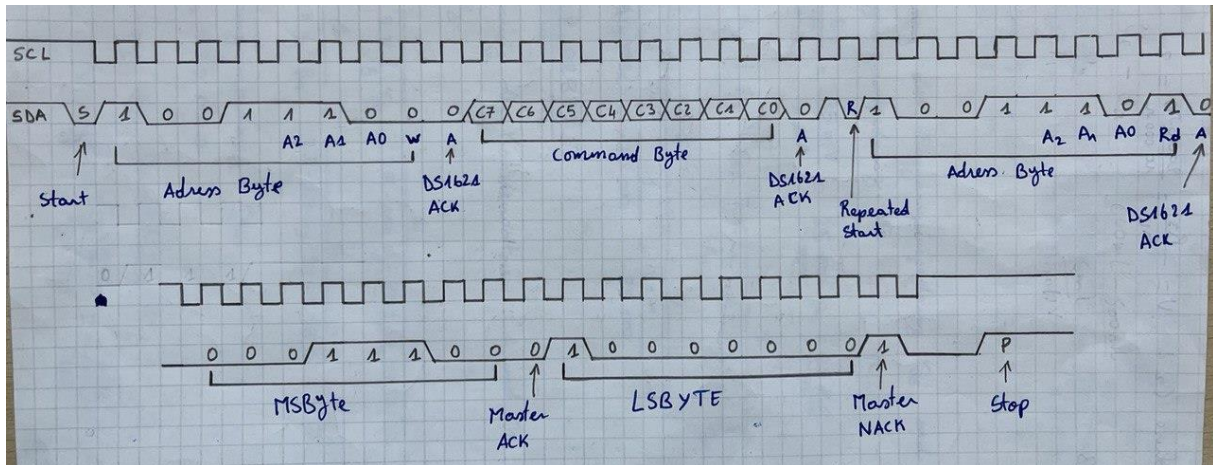 SCL
SDA S 1 0 0 1 1 1 0 0 0 C7 C6 C5 C4 C3 C2 C1 C0 0 R 1 0 0 1 1 1 0 1 0
A2 A1 A0 W A A A2 A1 A0 Rd A
Start Adress Byte DS1621 ACK Command Byte DS1621 ACK Repeated Start Adress Byte DS1621 ACK
0 1 1 1
0 0 0 1 1 1 0 0 0 1 0 0 0 0 0 0 0 1 P
MSByte Master ACK LSBYTE Master NACK Stop